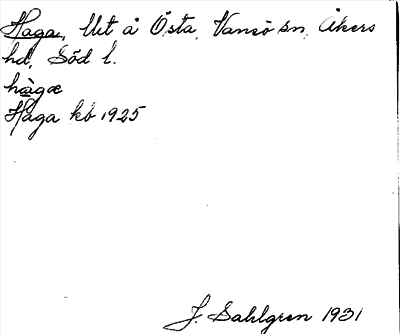 Haga, Utt å Östa, Vansö sn, Åkers
hd, Söd l.
hàgæ
Haga kb 1925
J. Sahlgren 1931